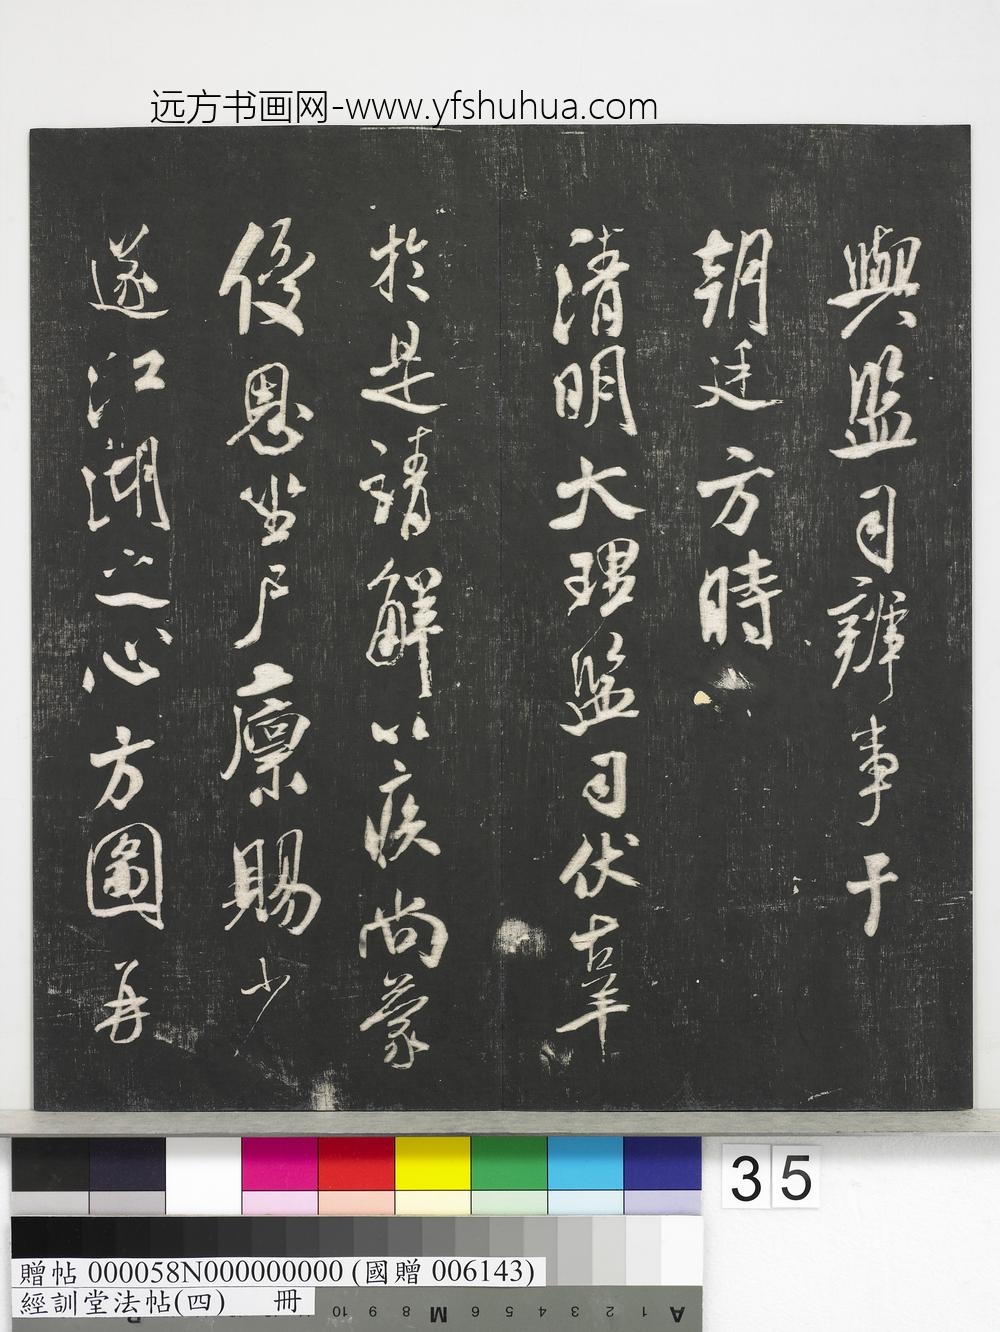 远方书画网-www.yfshuhua.com
與監司辨事于
朝廷方時
清明大理監司伏辜
於是請解以疾尚蒙
優恩坐尸廪賜少
遂江湖之心方圖再
35
贈帖 000058N000000000 (國贈 006143)
經訓堂法帖(四) 冊
10 9 8 M 6 5 4 3 2 1 A